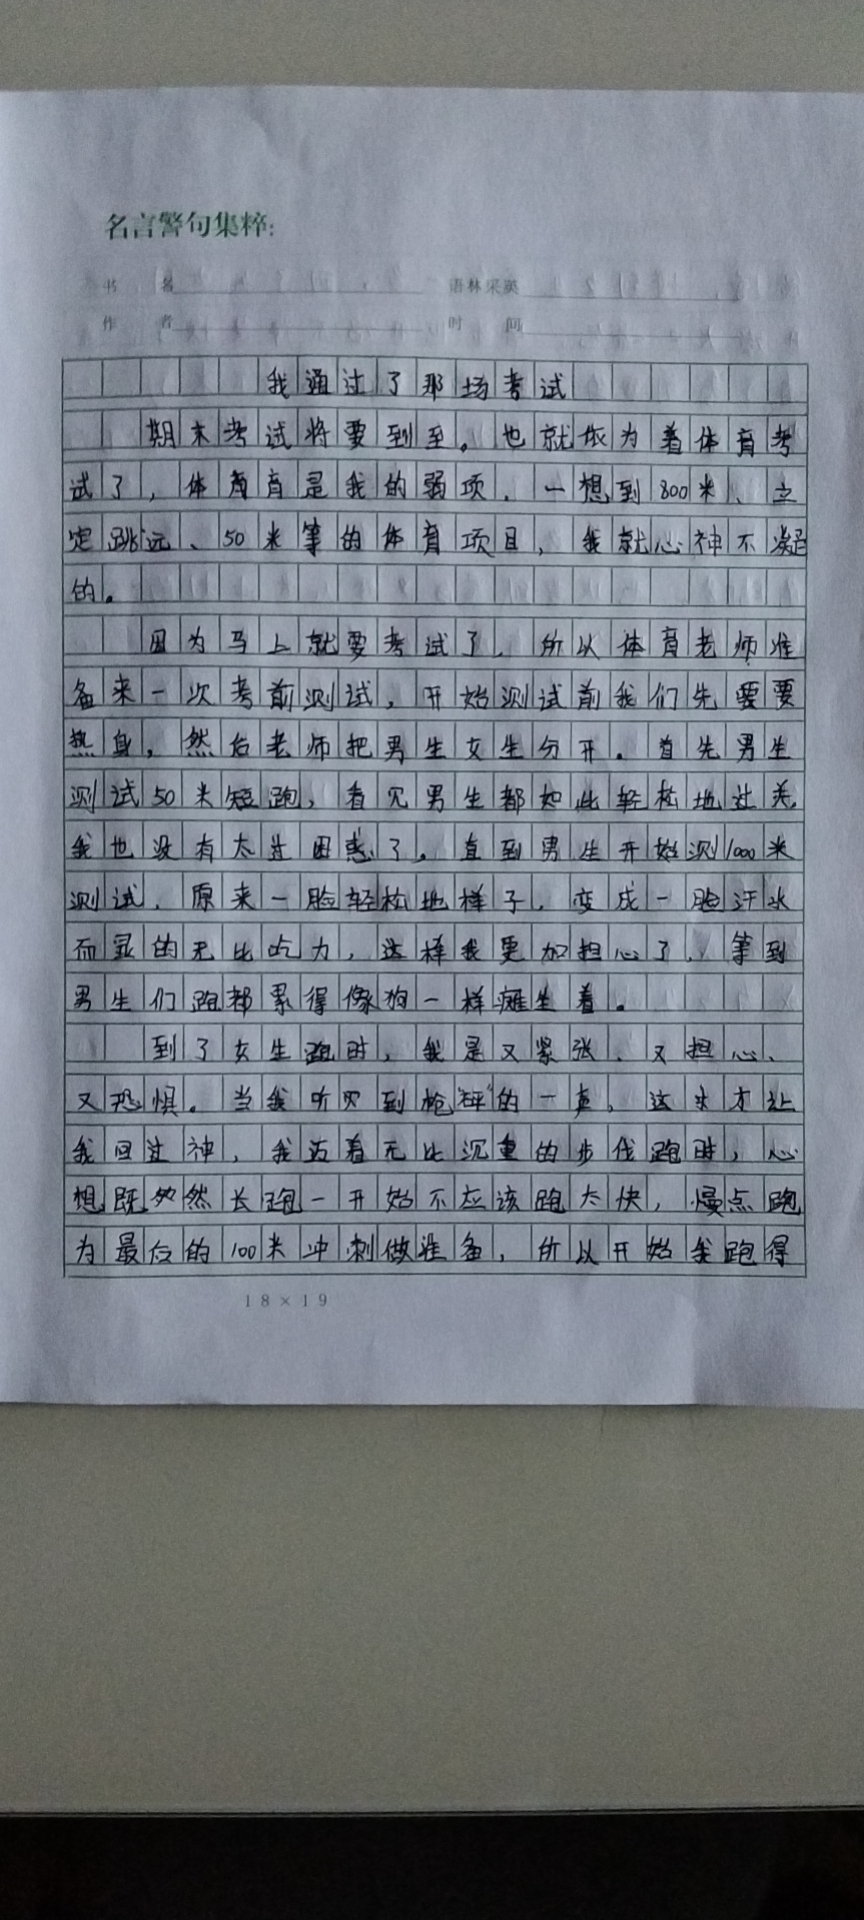 名言警句集粹:
书 名 语林采英
作 者 时 间
我通过了那场考试
期末考试将要到至。也就依为着体育考
试了，体育是我的弱项．一想到800米、立
定跳远、50米等的体育项目，我就心神不凝
的。
因为马上就要考试了．所以体育老师准
备来一次考前测试，开始测试前我们先要要
热身，然后老师把男生女生分开。首先男生
测试50米短跑，看见男生都如此轻松地过关，
我也没有太过困惑了。直到男生开始测1000米
测试．原来一脸轻松地样子．变成一脸汗水
而显的无比吃力，这样我更加担心了．等到
男生们跑都累得像狗一样瘫坐着。
到了女生跑时，我是又紧张．又担心、
又恐惧。当我听见到枪“砰”的一声，这才让
我回过神，我迈着无比沉重的步伐跑时，心
想既然长跑一开始不应该跑太快，慢点跑
为最后的100米冲刺做准备，所以开始我跑得
18×19